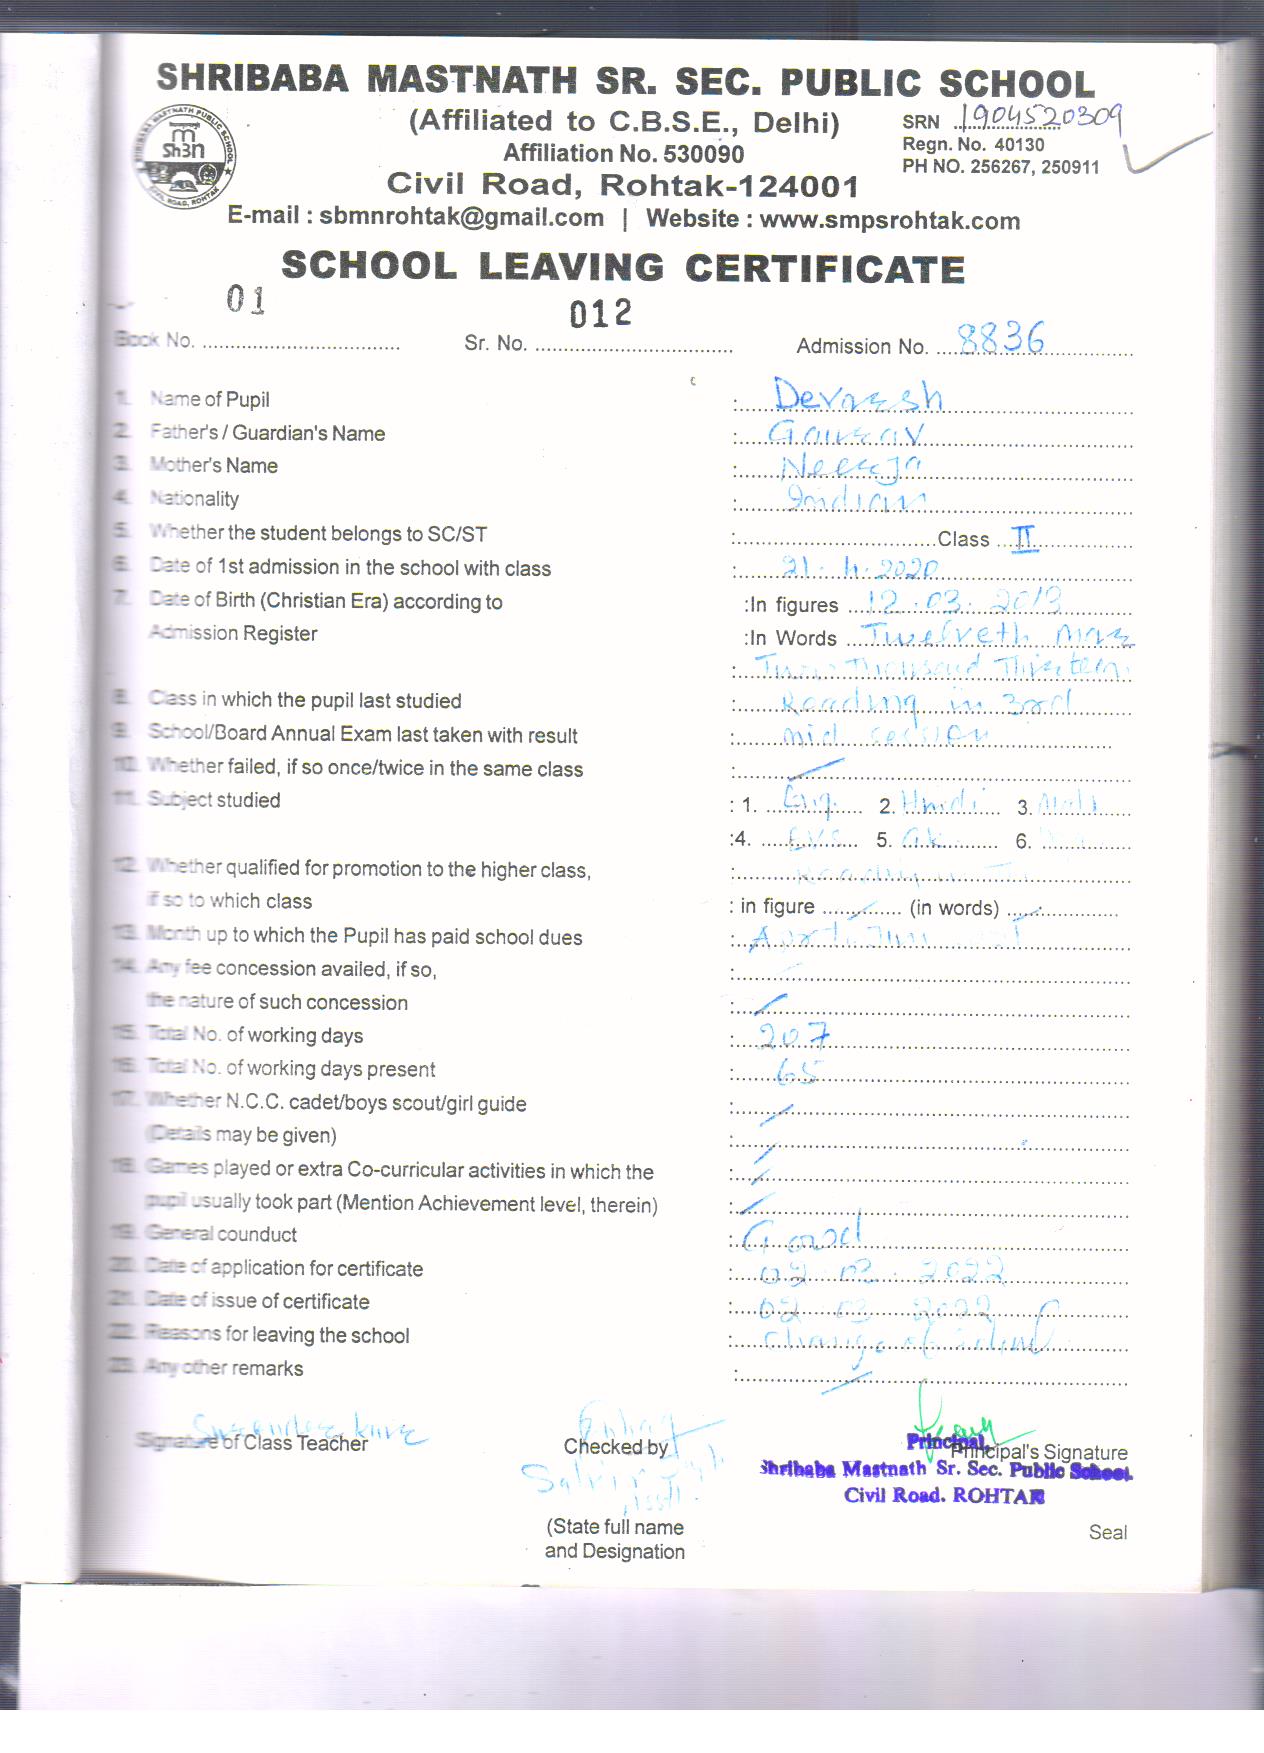 SHRIBABA MASTNATH SR. SEC. PUBLIC SCHOOL
(Affiliated to C.B.S.E., Delhi)
SRN 1904520309
Affiliation No. 530090
Regn. No. 40130
PH NO. 256267, 250911
Civil Road, Rohtak-124001
E-mail : sbmnrohtak@gmail.com | Website : www.smpsrohtak.com
SCHOOL LEAVING CERTIFICATE
Book No. 01 Sr. No. 012 Admission No. 8836
1. Name of Pupil : Devansh
2. Father's / Guardian's Name : Gaurav
3. Mother's Name : Neerja
4. Nationality : Indian
5. Whether the student belongs to SC/ST : Class II
6. Date of 1st admission in the school with class : 21.4.2020
7. Date of Birth (Christian Era) according to :In figures 12.03.2013
Admission Register :In Words Twelveth Mar
: Two Thousand Thirteen
8. Class in which the pupil last studied : Reading in 3rd
9. School/Board Annual Exam last taken with result : mid cession
10. Whether failed, if so once/twice in the same class :
11. Subject studied : 1. Eng. 2. Hindi 3. Math
:4. E.V.S 5. G.k 6.
12. Whether qualified for promotion to the higher class, : Reading in
if so to which class : in figure (in words)
13. Month up to which the Pupil has paid school dues :
14. Any fee concession availed, if so, :
the nature of such concession :
15. Total No. of working days : 207
16. Total No. of working days present : 65
17. Whether N.C.C. cadet/boys scout/girl guide :
(Details may be given) :
18. Games played or extra Co-curricular activities in which the :
pupil usually took part (Mention Achievement level, therein) :
19. General counduct : Good
20. Date of application for certificate : 02.03.2022
21. Date of issue of certificate : 02.03.2022
22. Reasons for leaving the school : Change of School
23. Any other remarks :
Signature of Class Teacher Checked by Principal's Signature
Principal,
Shribaba Mastnath Sr. Sec. Public School
Civil Road. ROHTAK
(State full name
and Designation
Seal